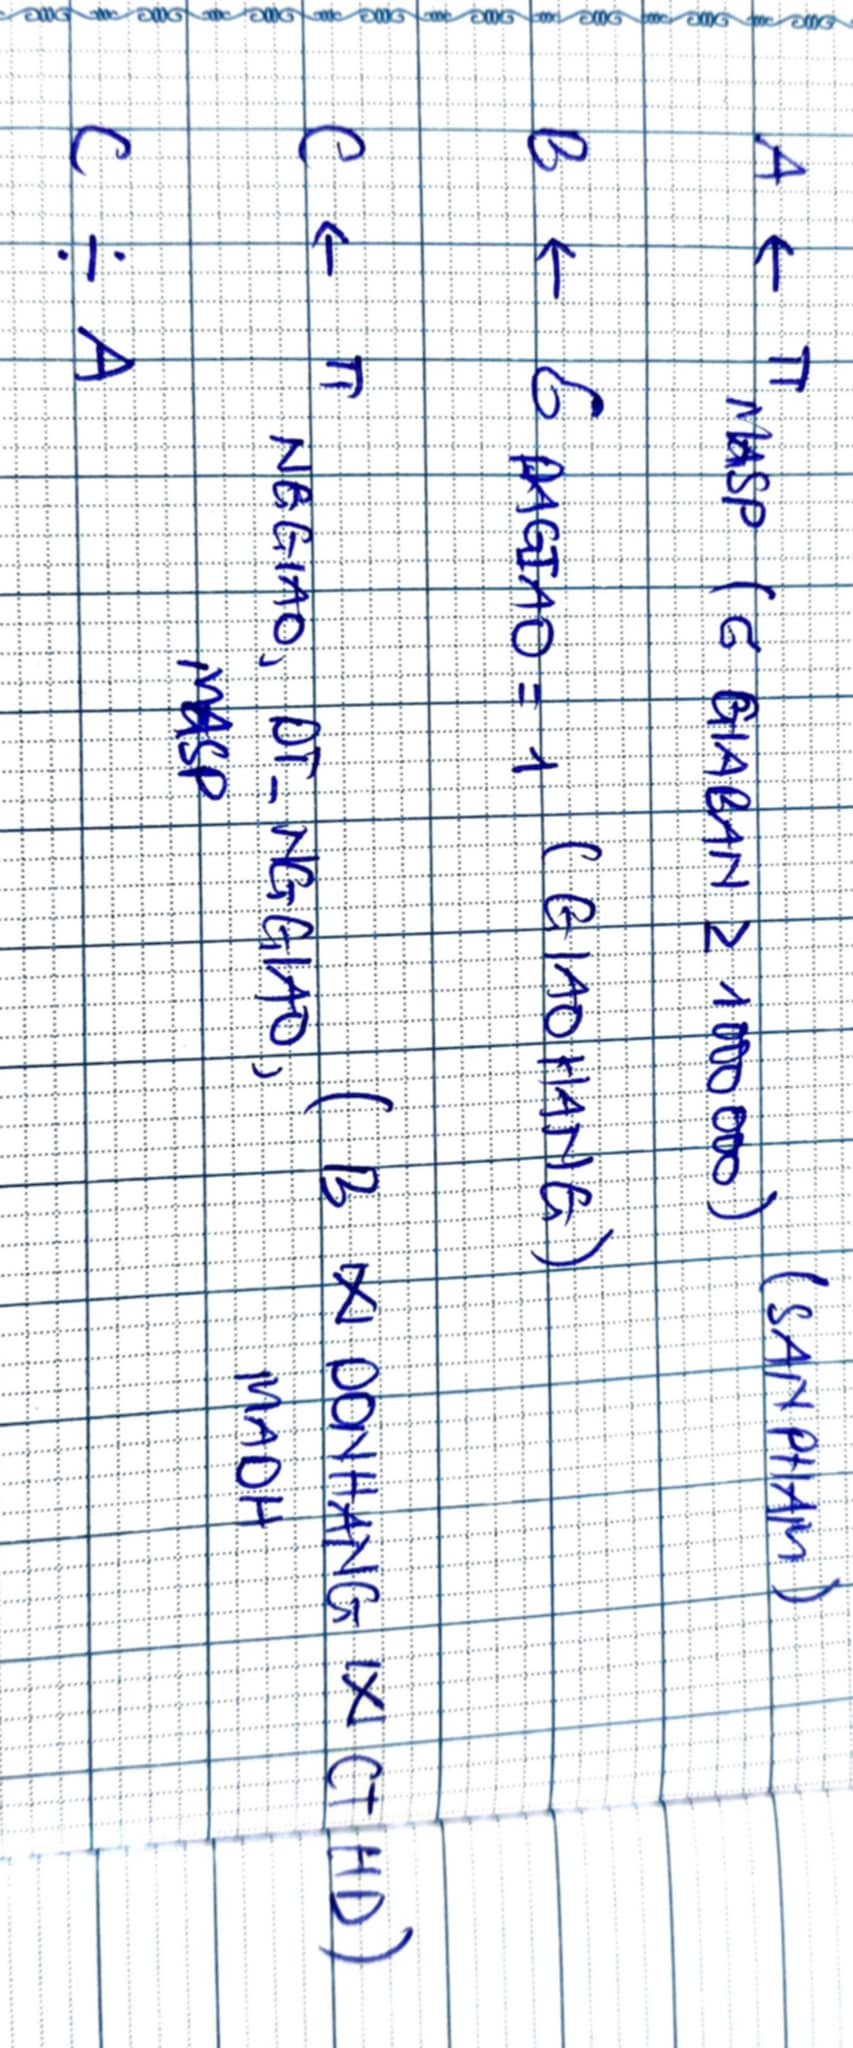 A ← π MASP (σ GIABAN ≥ 1000 000) (SANPHAM)
B ← σ DAGIAO = 1 (GIAOHANG)
C ← π NGGIAO, DT_NGGIAO, MASP (B ⋈ MADH DONHANG ⋈ CTHD)
C ÷ A